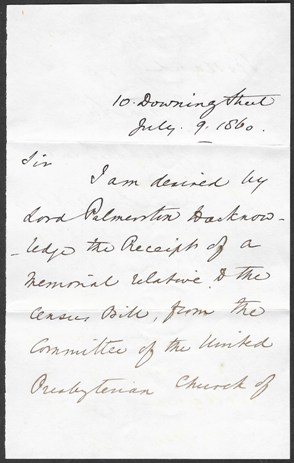 10. Downing Street
July. 9. 1860.
Sir
I am desired by
Lord Palmerston to acknow-
-ledge the Receipt of a
Memorial relative to the
Census Bill, from the
Committee of the United
Presbyterian Church of